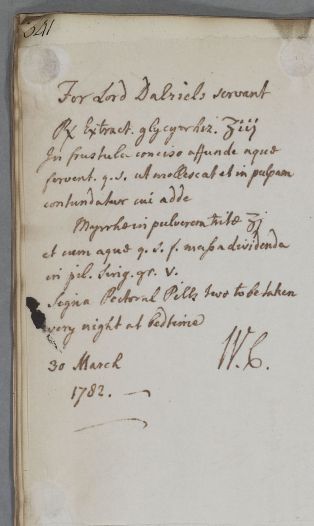 341
For Lord Dalziels servant
℞ Extract. glycyrrhiz. ʒiij
In frustula conciso affunde aquæ
fervent. q.s. ut mollescat et in pulpam
contundatur cui adde
Myrrhæ in pulverem tritæ ʒj
et cum aquæ q.s. f. massa dividenda
in pil. sing. gr. v.
Signa Pectoral Pills two to be taken
every night at bedtime
30 March W.C.
1782.